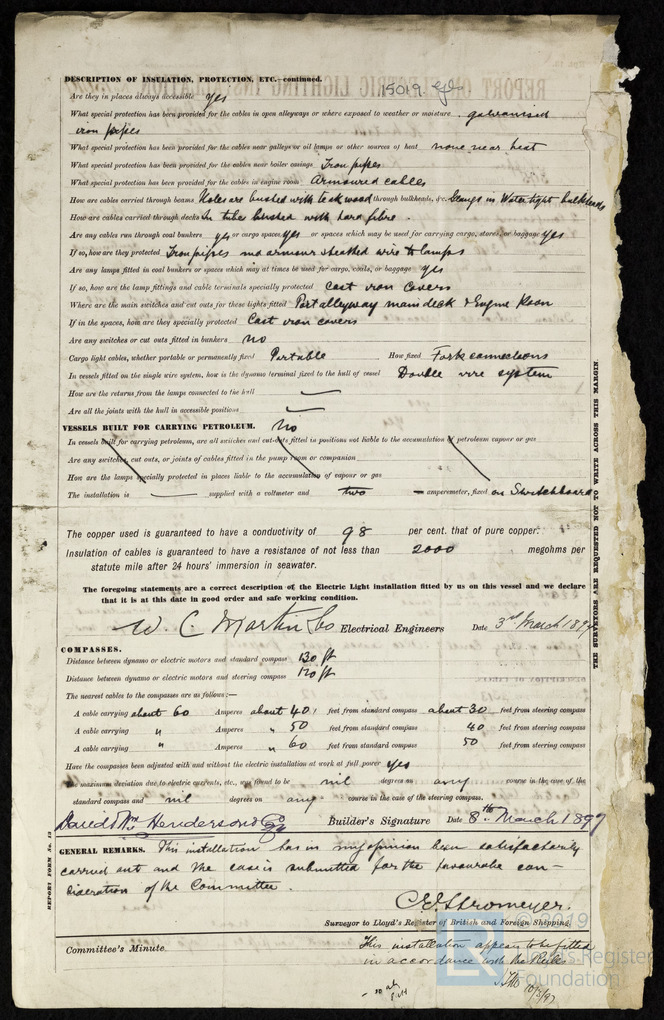 DESCRIPTION OF INSULATION, PROTECTION, ETC.—continued.
15019 gls
Are they in places always accessible yes
What special protection has been provided for the cables in open alleyways or where exposed to weather or moisture galvanised
iron pipes
What special protection has been provided for the cables near galleys or oil lamps or other sources of heat none near heat
What special protection has been provided for the cables near boiler casings Iron pipes
What special protection has been provided for the cables in engine room Armoured cables
How are cables carried through beams Holes are bushed with teak wood through bulkheads, &c. Glands in Watertight bulkheads
How are cables carried through decks In tubes bushed with hard fibre.
Are any cables run through coal bunkers yes or cargo spaces yes or spaces which may be used for carrying cargo, stores, or baggage yes
If so, how are they protected Iron pipes and armour sheathed wire to lamps
Are any lamps fitted in coal bunkers or spaces which may at times be used for cargo, coals, or baggage yes
If so, how are the lamp fittings and cable terminals specially protected Cast iron Covers
Where are the main switches and cut outs for these lights fitted Port alleyway main deck & Engine Room
If in the spaces, how are they specially protected Cast iron covers
Are any switches or cut outs fitted in bunkers no
Cargo light cables, whether portable or permanently fixed Portable How fixed Fork connections
In vessels fitted on the single wire system, how is the dynamo terminal fixed to the hull of vessel Double wire system
How are the returns from the lamps connected to the hull
Are all the joints with the hull in accessible positions
VESSELS BUILT FOR CARRYING PETROLEUM. No
In vessels built for carrying petroleum, are all switches and cut-outs fitted in positions not liable to the accumulation of petroleum vapour or gas
Are any switches, cut outs, or joints of cables fitted in the pump room or companion
How are the lamps specially protected in places liable to the accumulation of vapour or gas
The installation is supplied with a voltmeter and two amperemeter, fixed on Switchboard
The copper used is guaranteed to have a conductivity of 98 per cent. that of pure copper.
Insulation of cables is guaranteed to have a resistance of not less than 2000 megohms per
statute mile after 24 hours' immersion in seawater.
The foregoing statements are a correct description of the Electric Light installation fitted by us on this vessel and we declare
that it is at this date in good order and safe working condition.
W. C. Martin & Co Electrical Engineers Date 3rd March 1897
COMPASSES.
Distance between dynamo or electric motors and standard compass 130 ft
Distance between dynamo or electric motors and steering compass 120 ft
The nearest cables to the compasses are as follows:—
A cable carrying about 60 Amperes about 40 feet from standard compass about 30 feet from steering compass
A cable carrying " Amperes " 50 feet from standard compass 40 feet from steering compass
A cable carrying " Amperes " 60 feet from standard compass 50 feet from steering compass
Have the compasses been adjusted with and without the electric installation at work at full power yes
The maximum deviation due to electric currents, etc., was found to be nil degrees on any course in the case of the
standard compass and nil degrees on any course in the case of the steering compass.
David & Wm Henderson & Co Builder's Signature Date 8th March 1897
GENERAL REMARKS. This installation has in my opinion been satisfactorily
carried out and the case is submitted for the favourable con-
sideration of the Committee.
C. E. Stromeyer.
Surveyor to Lloyd's Register of British and Foreign Shipping.
Committee's Minute
This installation appears to be fitted
in accordance with the Rules
10/3/97
REPORT FORM No. 13
THE SURVEYORS ARE REQUESTED NOT TO WRITE ACROSS THIS MARGIN.
© 2019
Lloyd's Register
Foundation